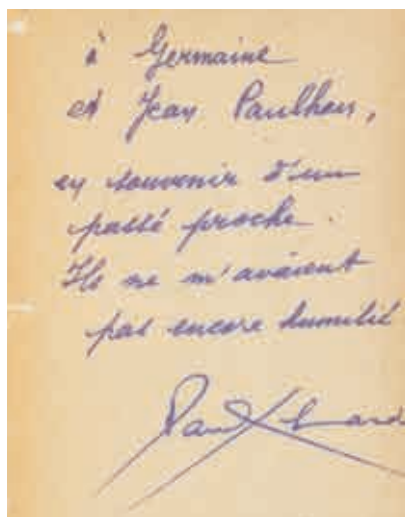 à Germaine
et Jean Paulhan,
en souvenir d'un
passé proche.
Ils ne m'avaient
pas encore humilié
Paul Eluard